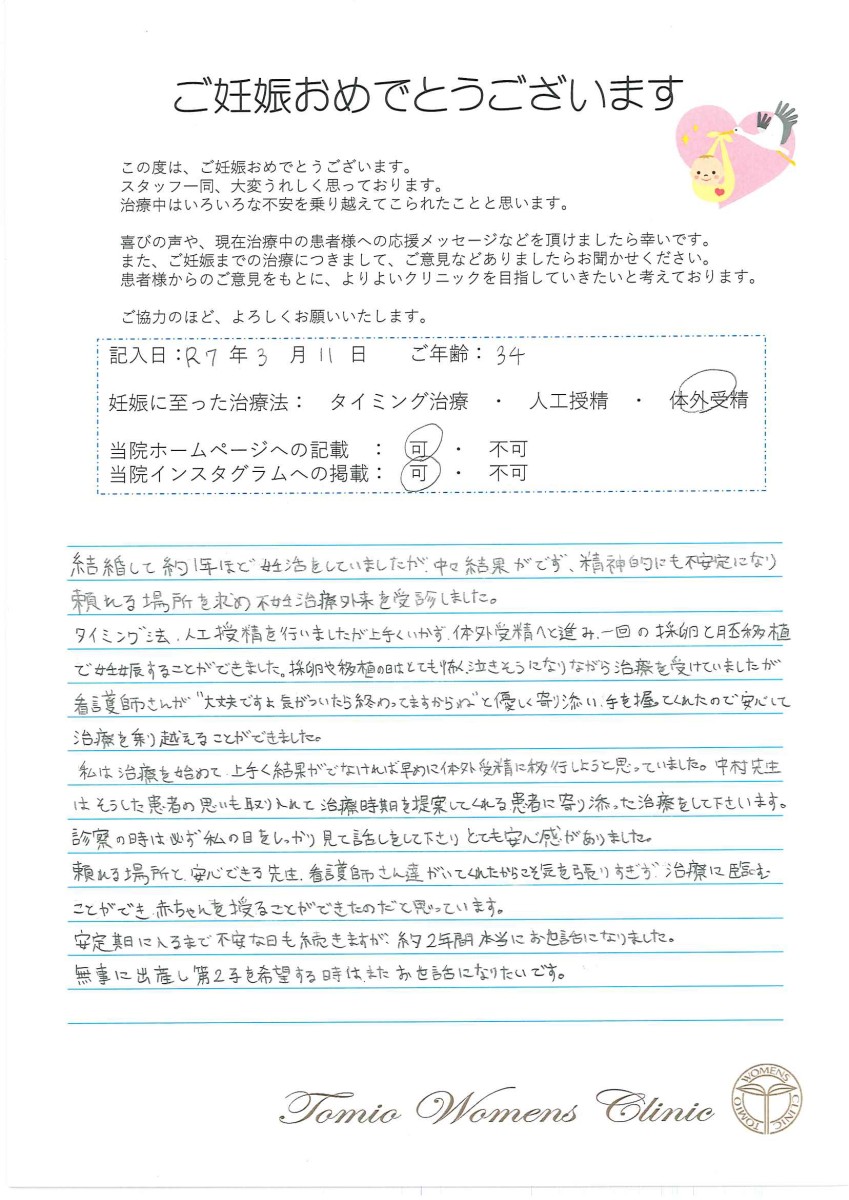 ご妊娠おめでとうございます
この度は、ご妊娠おめでとうございます。
スタッフ一同、大変うれしく思っております。
治療中はいろいろな不安を乗り越えてこられたことと思います。
喜びの声や、現在治療中の患者様への応援メッセージなどを頂けましたら幸いです。
また、ご妊娠までの治療につきまして、ご意見などありましたらお聞かせください。
患者様からのご意見をもとに、よりよいクリニックを目指していきたいと考えております。
ご協力のほど、よろしくお願いいたします。
記入日：R7 年 3 月 11 日 ご年齢： 34
妊娠に至った治療法： タイミング治療 ・ 人工授精 ・ 体外受精
当院ホームページへの記載 ： 可 ・ 不可
当院インスタグラムへの掲載： 可 ・ 不可
結婚して約1年ほど妊活をしていましたが、中々結果がでず、精神的にも不安定になり
頼れる場所を求め不妊治療外来を受診しました。
タイミング法、人工授精を行いましたが上手くいかず、体外受精へと進み、一回の採卵と胚移植
で妊娠することができました。採卵や移植の日はとても怖く、泣きそうになりながら治療を受けていましたが
看護師さんが"大丈夫ですよ、気がついたら終わってますからね"と優しく寄り添い、手を握ってくれたので安心して
治療を乗り越えることができました。
私は治療を始めて、上手く結果がでなければ早めに体外受精に移行しようと思っていました。中村先生
はそうした患者の思いも取り入れて治療時期を提案してくれる患者に寄り添った治療をして下さいます。
診察の時は必ず私の目をしっかり見て話しをして下さりとても安心感がありました。
頼れる場所と、安心できる先生、看護師さん達がいてくれたからこそ気を張りすぎず、治療に臨む
ことができ、赤ちゃんを授ることができたのだと思っています。
安定期に入るまで不安な日も続きますが、約2年間本当にお世話になりました。
無事に出産し第2子を希望する時は、またお世話になりたいです。
Tomio Womens Clinic
TOMIO WOMENS CLINIC